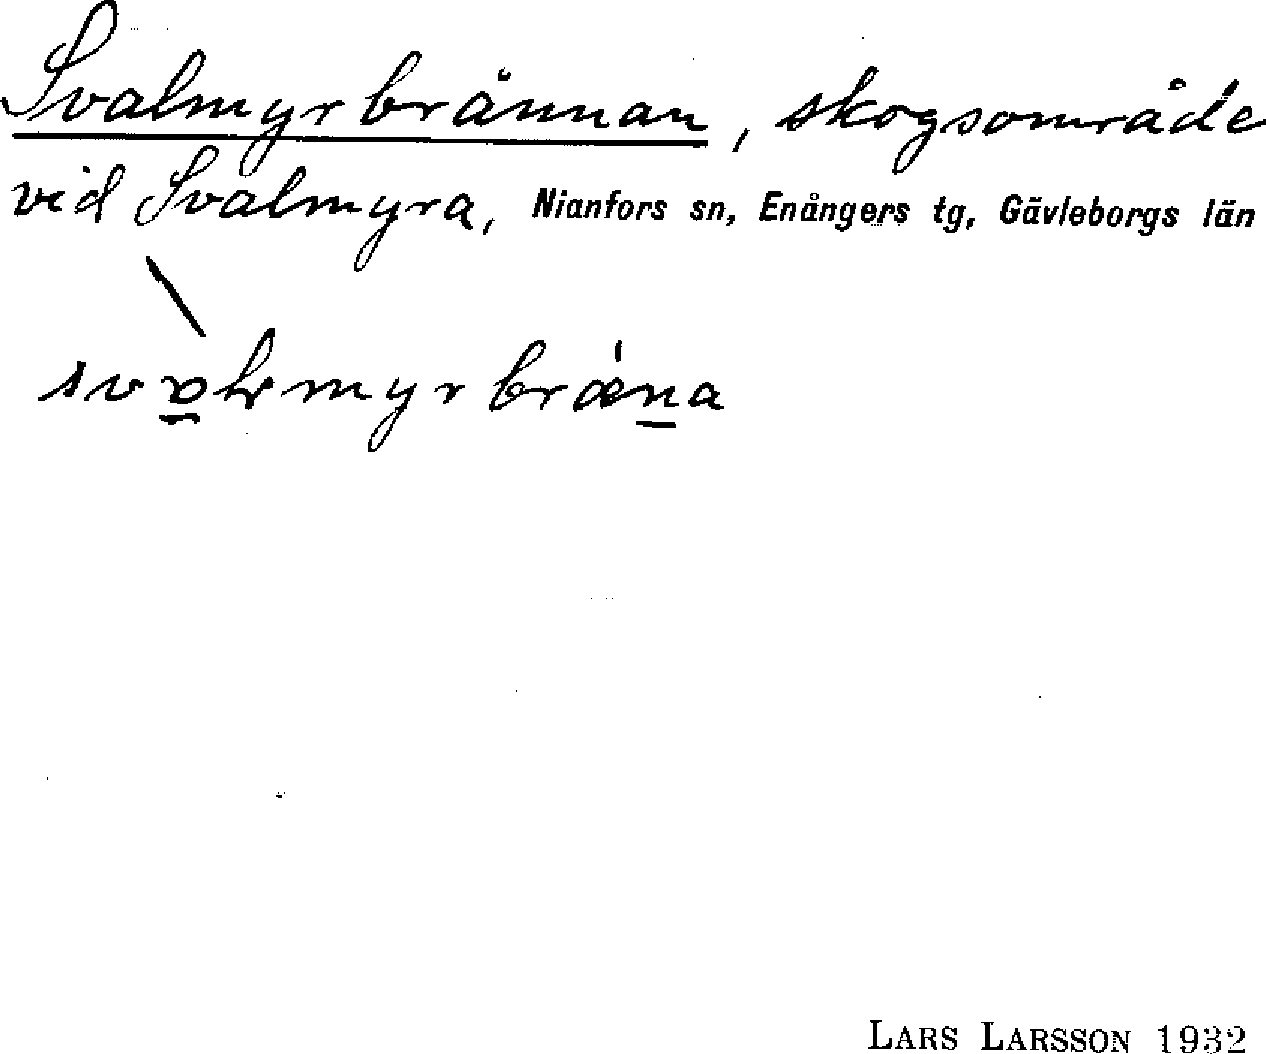 Svalmyrbrännan, skogsområde
vid Svalmyra, Nianfors sn, Enångers tg, Gävleborgs län
LARS LARSSON 1932